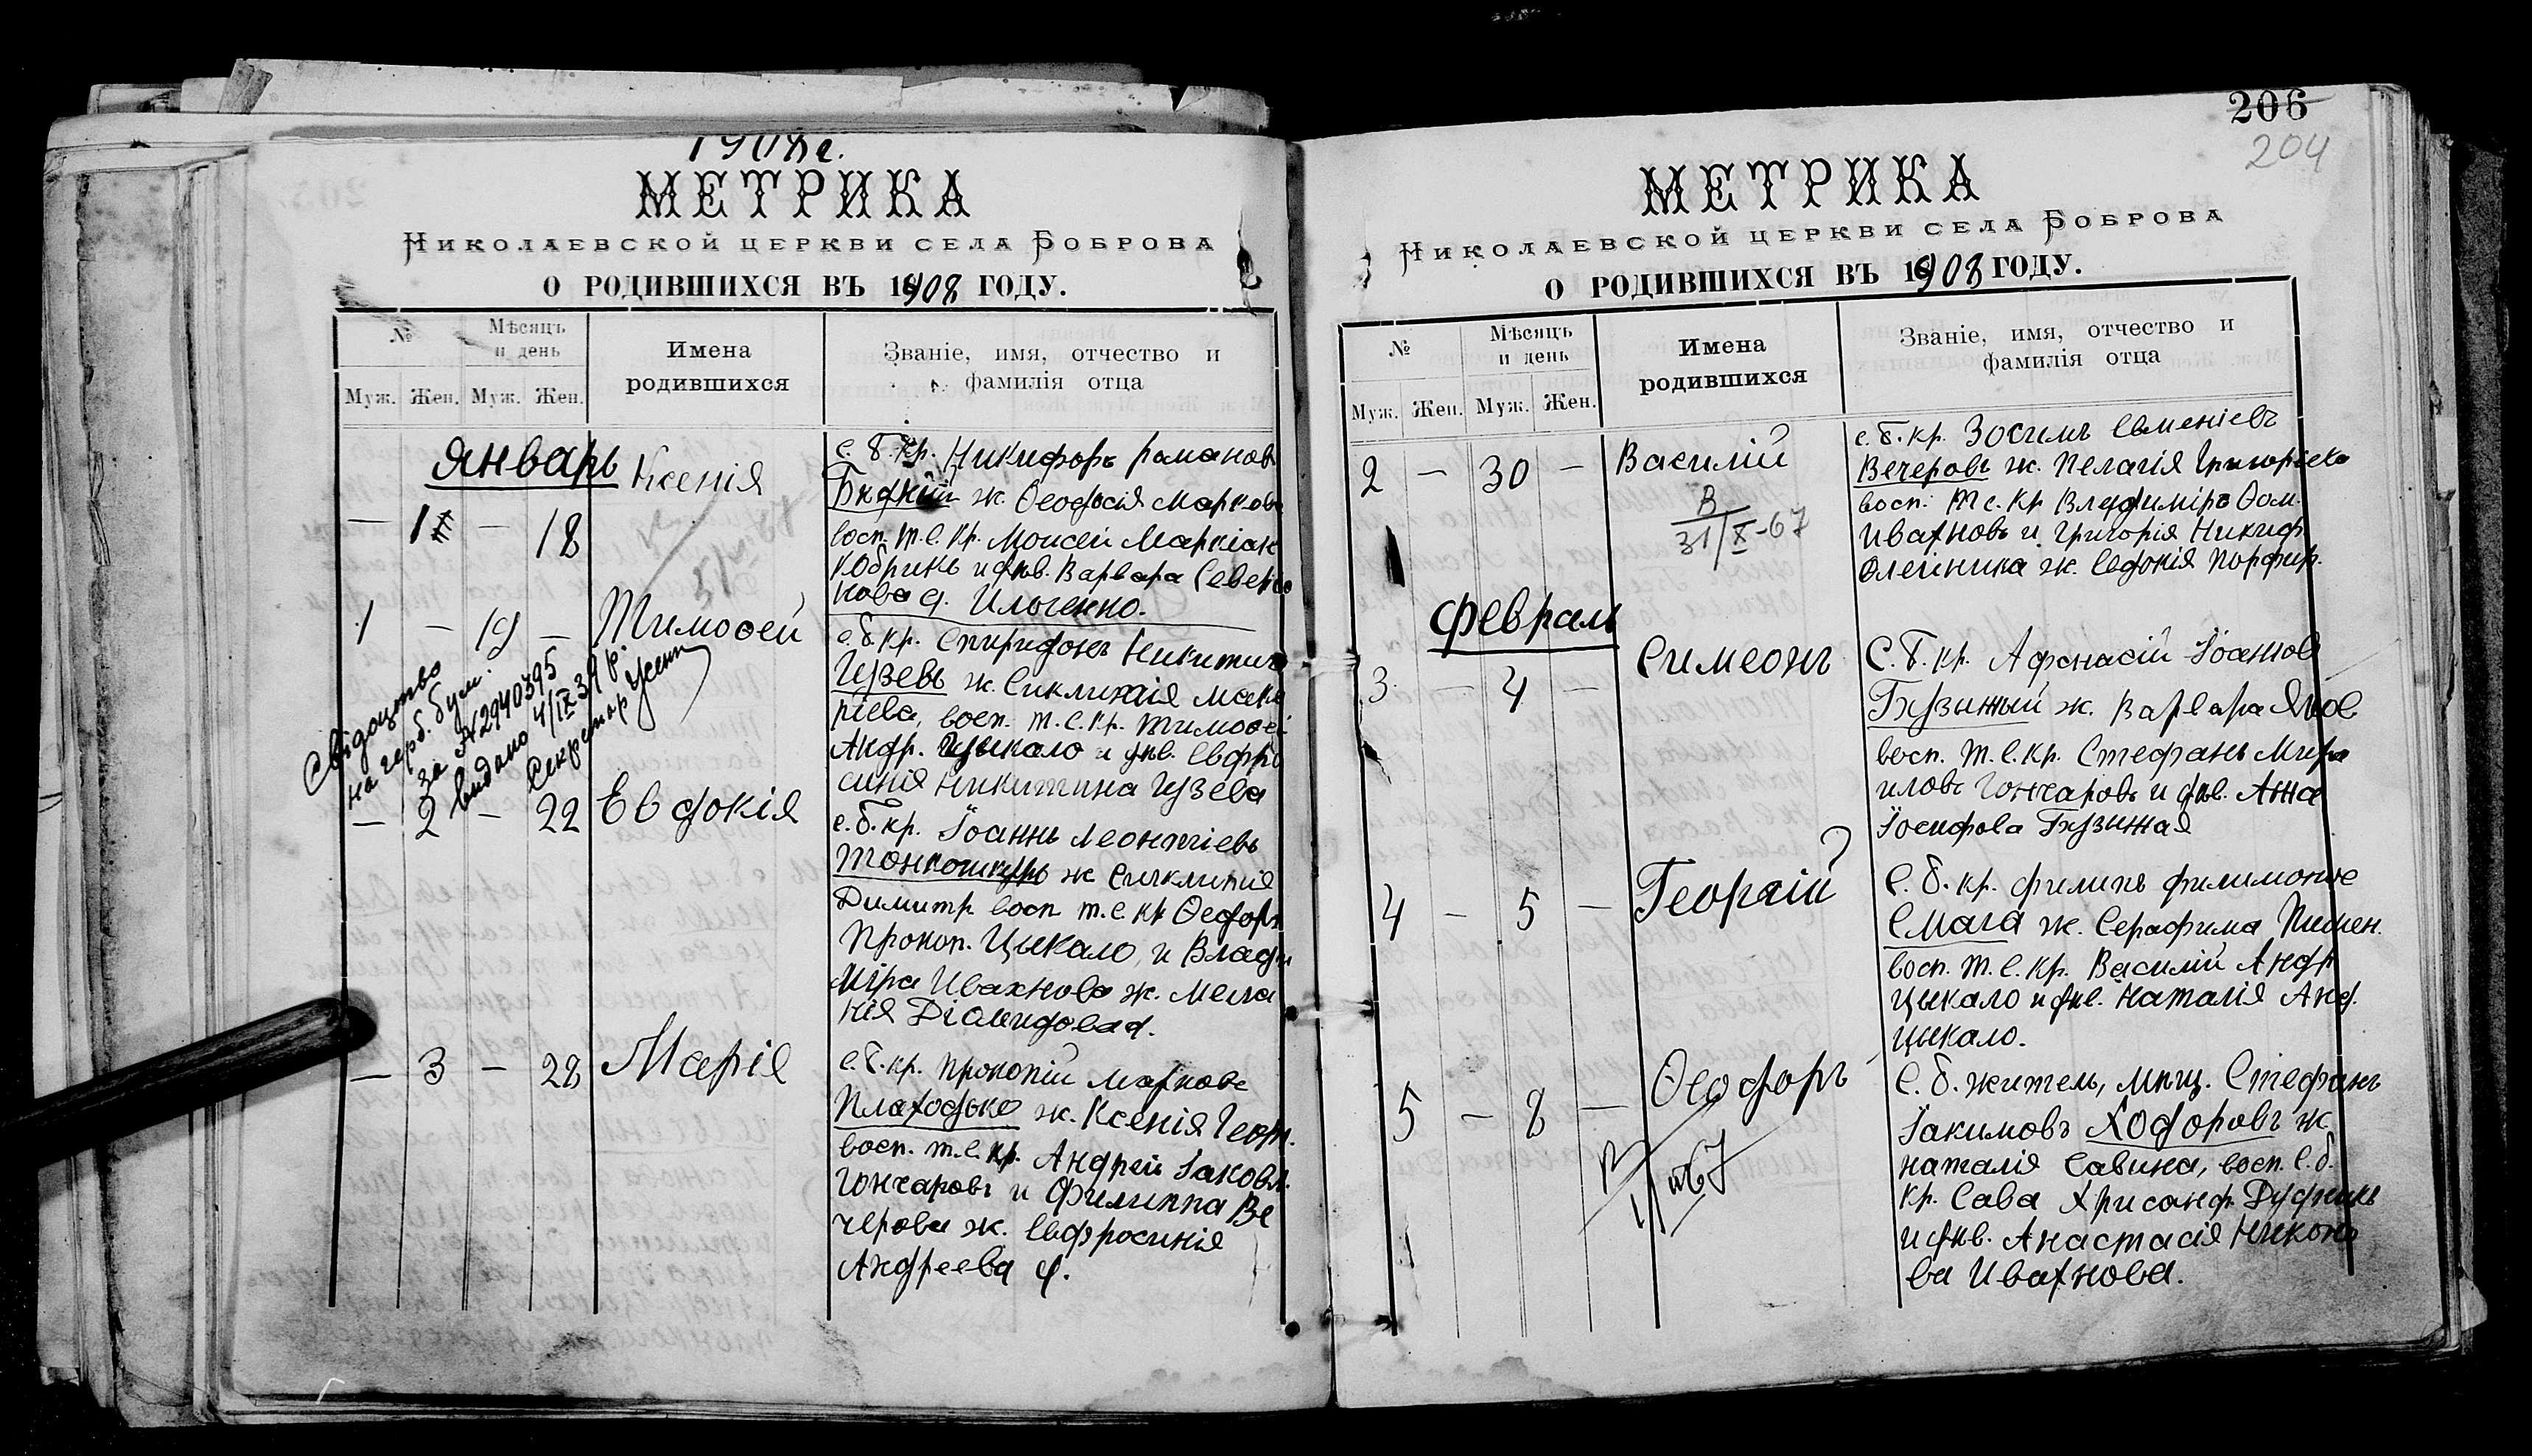 1908 г.
МЕТРИКА
Николаевской церкви села Боброва
О РОДИВШИХСЯ ВЪ 1908 ГОДУ.
№
Мѣсяцъ и день
Имена родившихся
Званіе, имя, отчество и фамилія отца
Муж. Жен. Муж. Жен.
Январь
— 1 — 18
Ксенія
с. б. кр. Никифоръ Романов
ж. Ѳеодосія Марков
восп. т. с. кр. Моисей Маркіан
Кобрикъ и дѣв. Варвара Северi
нова д. Ильченко.
1 — 19 —
Тимоѳей
с. б. кр. Спиридонъ Никитинъ
Гузевъ ж. Сиклитія Мака
ріева, восп. т. с. кр. Тимоѳей
Андр. Цыкало и дѣв. Евфро
синія Никитина Гузева
Свідоцтво
на герб. бум.
за № 2940395
видано 4/IX 39 р.
Секретар
— 2 — 22
Евдокія
с. б. кр. Іоаннъ Леонтіевъ
Тонкошкуръ ж. Сиклитія
Димитр. восп. т. с. кр. Ѳеодоръ
Прокоп. Цыкало, и Влади
міра Ивахнова ж. Мела
нія Діомидова д.
— 3 — 28
Марія
с. б. кр. Прокопій Марковъ
Плаходько ж. Ксенія Георг.
восп. т. с. кр. Андрей Іаковл.
Гончаровъ и Филиппа Ве
черова ж. Евфросинія
Андреева д.
206
204
МЕТРИКА
Николаевской церкви села Боброва
О РОДИВШИХСЯ ВЪ 1908 ГОДУ.
№
Мѣсяцъ и день
Имена родившихся
Званіе, имя, отчество и фамилія отца
Муж. Жен. Муж. Жен.
2 — 30 —
Василій
В
31/X-67
с. б. кр. Зосимъ Евменіевъ
Вечеровъ ж. Пелагія Григоріева
восп. т. с. кр. Владиміръ Ѳом.
Ивахновъ и Григорія Никиф.
Олейника ж. Евдокія Порфир.
Февраль
3 — 4 —
Симеонъ
С. б. кр. Афанасій Іоаннов
Бузинный ж. Варвара Яков
восп. т. с. кр. Стефанъ Миха
иловъ Гончаровъ и дѣв. Анна
Іосифова Бузинная
4 — 5 —
Георгій
С. б. кр. Филипъ Филимонов
Смага ж. Серафима Пимен.
восп. т. с. кр. Василій Андр
Цыкало и дѣв. Наталія Анд.
Цыкало.
5 — 8 —
Ѳеодоръ
С. б. житель, мѣщ. Стефанъ
Іакимовъ Ходоровъ ж
Наталія Савина, восп. с. б.
кр. Сава Хрисанф. Дудникъ
и дѣв. Анастасія Никоно
ва Ивахнова.